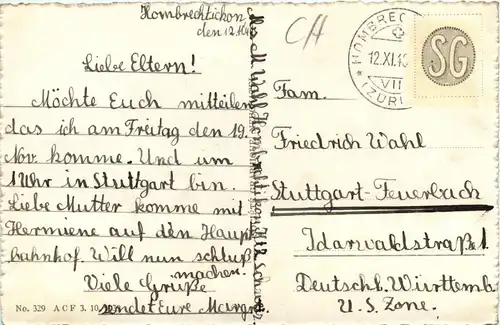 Hombrechtikon
den 12.
Liebe Eltern!
Möchte Euch mitteilen
das ich am Freitag den 19.
Nov. komme. Und um
1 Uhr in Stuttgart bin.
Liebe Mutter komme mit
Hermiene auf den Haupt
bahnhof. Will nun schluß
machen.
Viele Grüße
sendet Eure
No. 329 ACF 3. 10.
M. Wahl Hombrechtikon Kt. Zch Schweiz.
CH
HOMBREC
12.XI.
VII
(ZÜRI
SG
Fam.
Friedrich Wahl
Stuttgart-Feuerbach
Idarwaldstraße 1
Deutschl. Württemb
U.S. Zone.